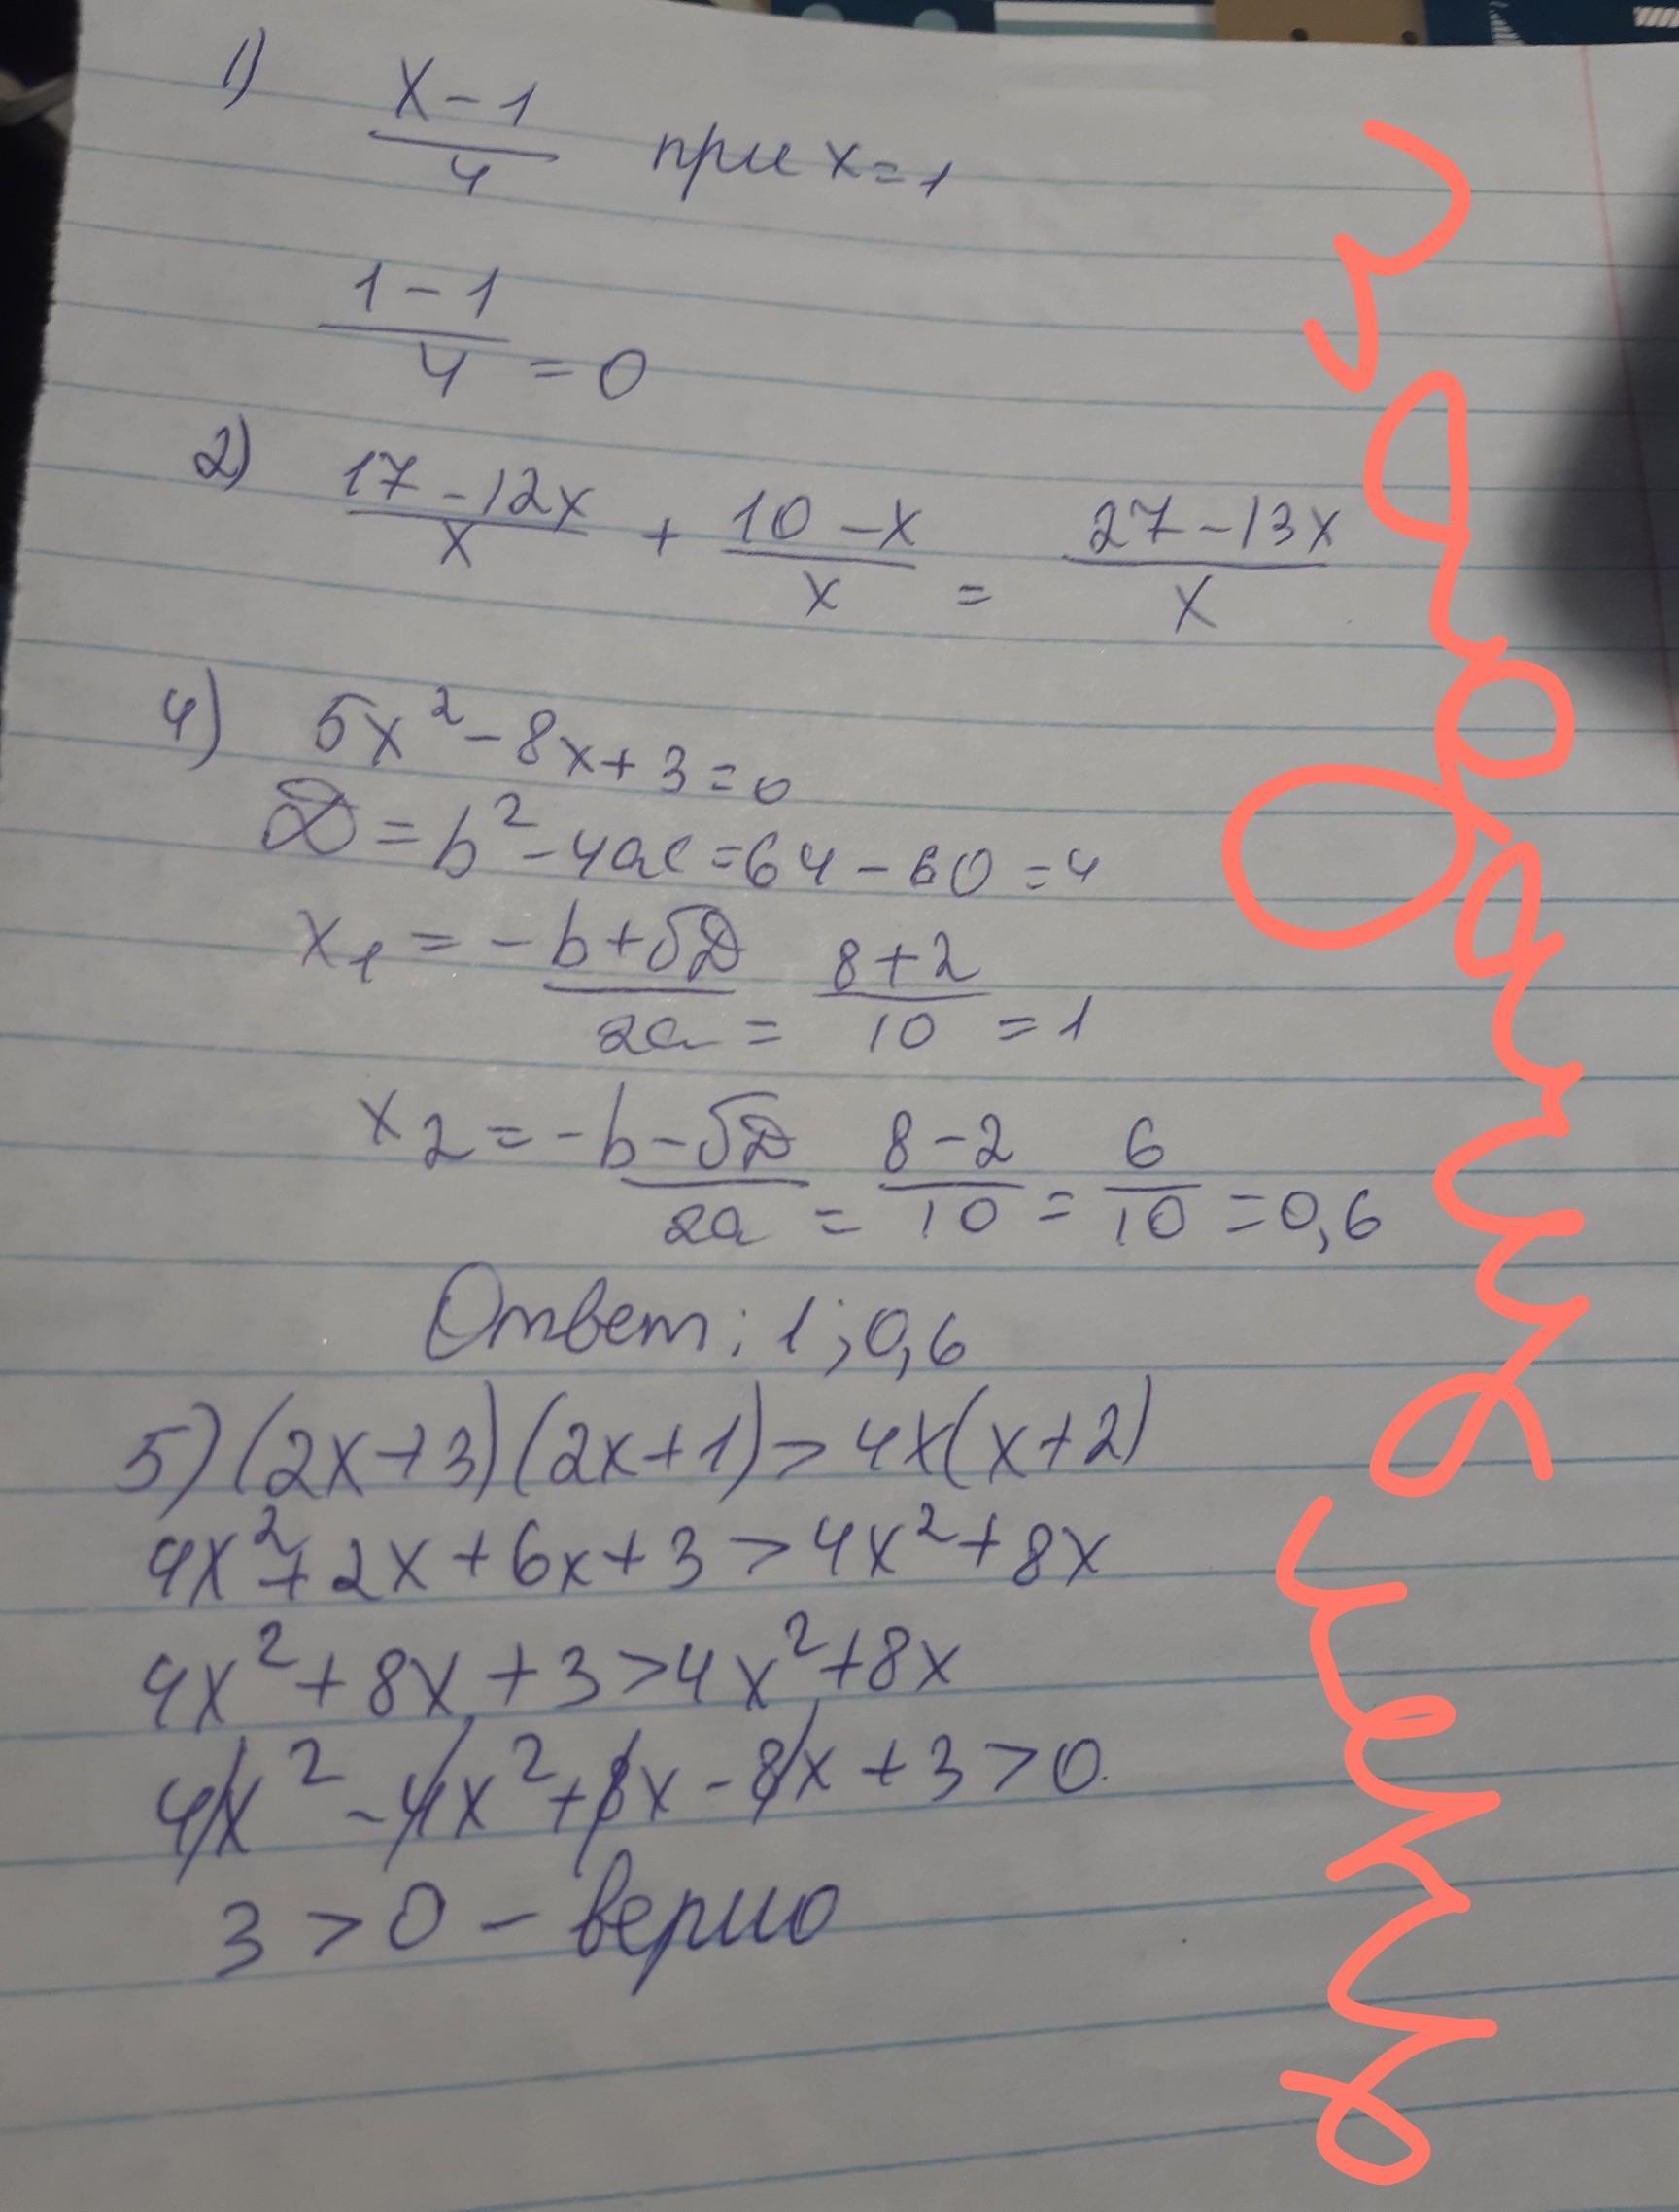 1) x-1/4 при x=1
1-1/4 = 0
2) 17-12x/x + 10-x/x = 27-13x/x
4) 5x²-8x+3=0
D=b²-4ac=64-60=4
x₁ = -b+√D/2a = 8+2/10 = 1
x₂ = -b-√D/2a = 8-2/10 = 6/10 = 0,6
Ответ: 1; 0,6
5) (2x+3)(2x+1)>4x(x+2)
4x²+2x+6x+3>4x²+8x
4x²+8x+3>4x²+8x
4x²-4x²+8x-8x+3>0
3>0 - верно